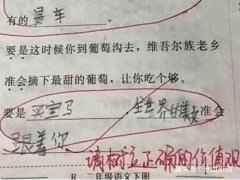 有的 暴车。
要是这时候你到葡萄沟去，维吾尔族老乡
准会摘下最甜的葡萄，让你吃个够。
要是 买宝马，全世界 准会
跟着你。
请树立正确的价值观
二年级语文下册